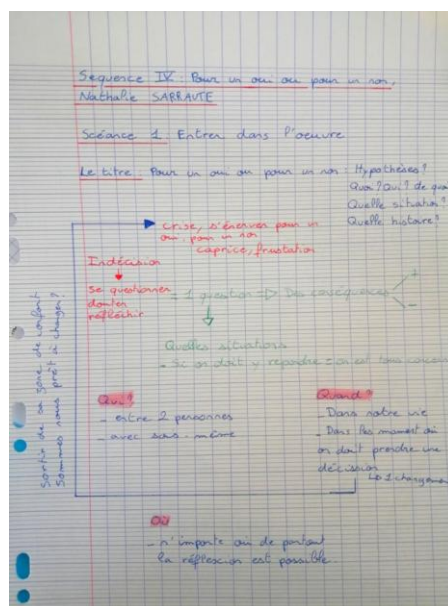 Séquence IV : Pour un oui ou pour un non,
Nathalie SARRAUTE
Scéance 1 : Entrer dans l'oeuvre
Le titre : Pour un oui ou pour un non : Hypothèses?
Quoi? Qui? de quoi
Quelle situation?
Quelle histoire?
Crise, s'énerver pour un
oui, pour un non
caprice, frustation
Indécision
Se questionner
douter
réfléchir
= 1 question => Des conséquences
+
-
Quelles situations
- Si on doit y répondre = on est tous
Sortir de sa zone de confort
Sommes nous prêt à changer?
Qui?
- entre 2 personnes
- avec sois-même
Quand?
- Dans notre vie
- Dans les moment où
on doit prendre une
décission
1 changement
Où
- n'importe où de partout
la réflexion est possible.